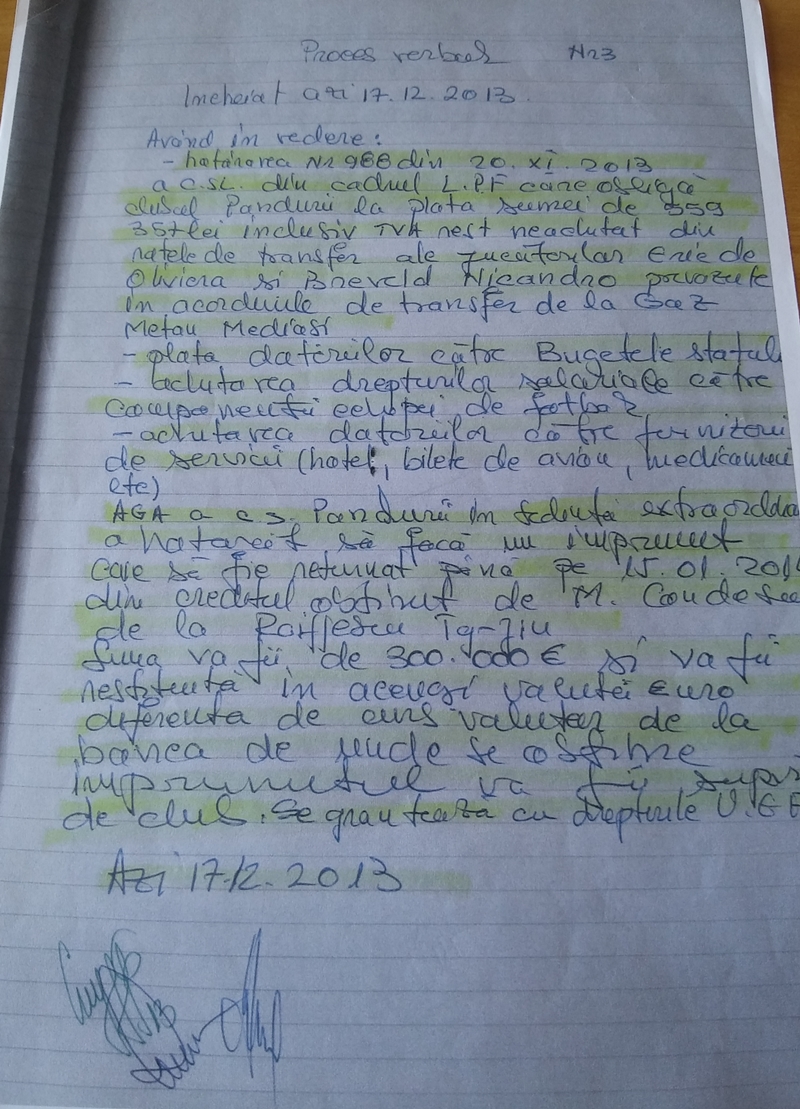 Proces verbal Nr 3
Incheiat azi 17.12.2013.
Având în vedere:
- hotărârea Nr 988 din 20. XI. 2013
a C.SL. din cadrul L.P.F care obligă
clubul Pandurii la plata sumei de 359
357 lei inclusiv TVA rest neachitat din
ratele de transfer ale jucătorilor Eric de
Oliviera si Breveld Nicandro prevazute
în acordurile de transfer de la Gaz
Metan Mediasi
- plata datoriilor către Bugetele statul
- achitarea drepturilor salariale către
componentii echipei de fotbal
- achitarea datoriilor către furnizori
de servicii (hotel, bilete de avion, medicamen
etc)
AGA a c s. Pandurii în sedinta extraordina
a hotarat să facă un imprumut
care să fie returnat pâna pe 15.01.201
din creditul obtinut de M. Condesc
de la Raiffescu Tg-Jiu
Suma va fii de 300.000 € si va fii
restituită în aceeasi valută euro
diferenta de curs valutar de la
banca de unde se obtine
imprumutul va fii supor
de club. Se garanteaza cu drepturile U.E
Azi 17.12.2013